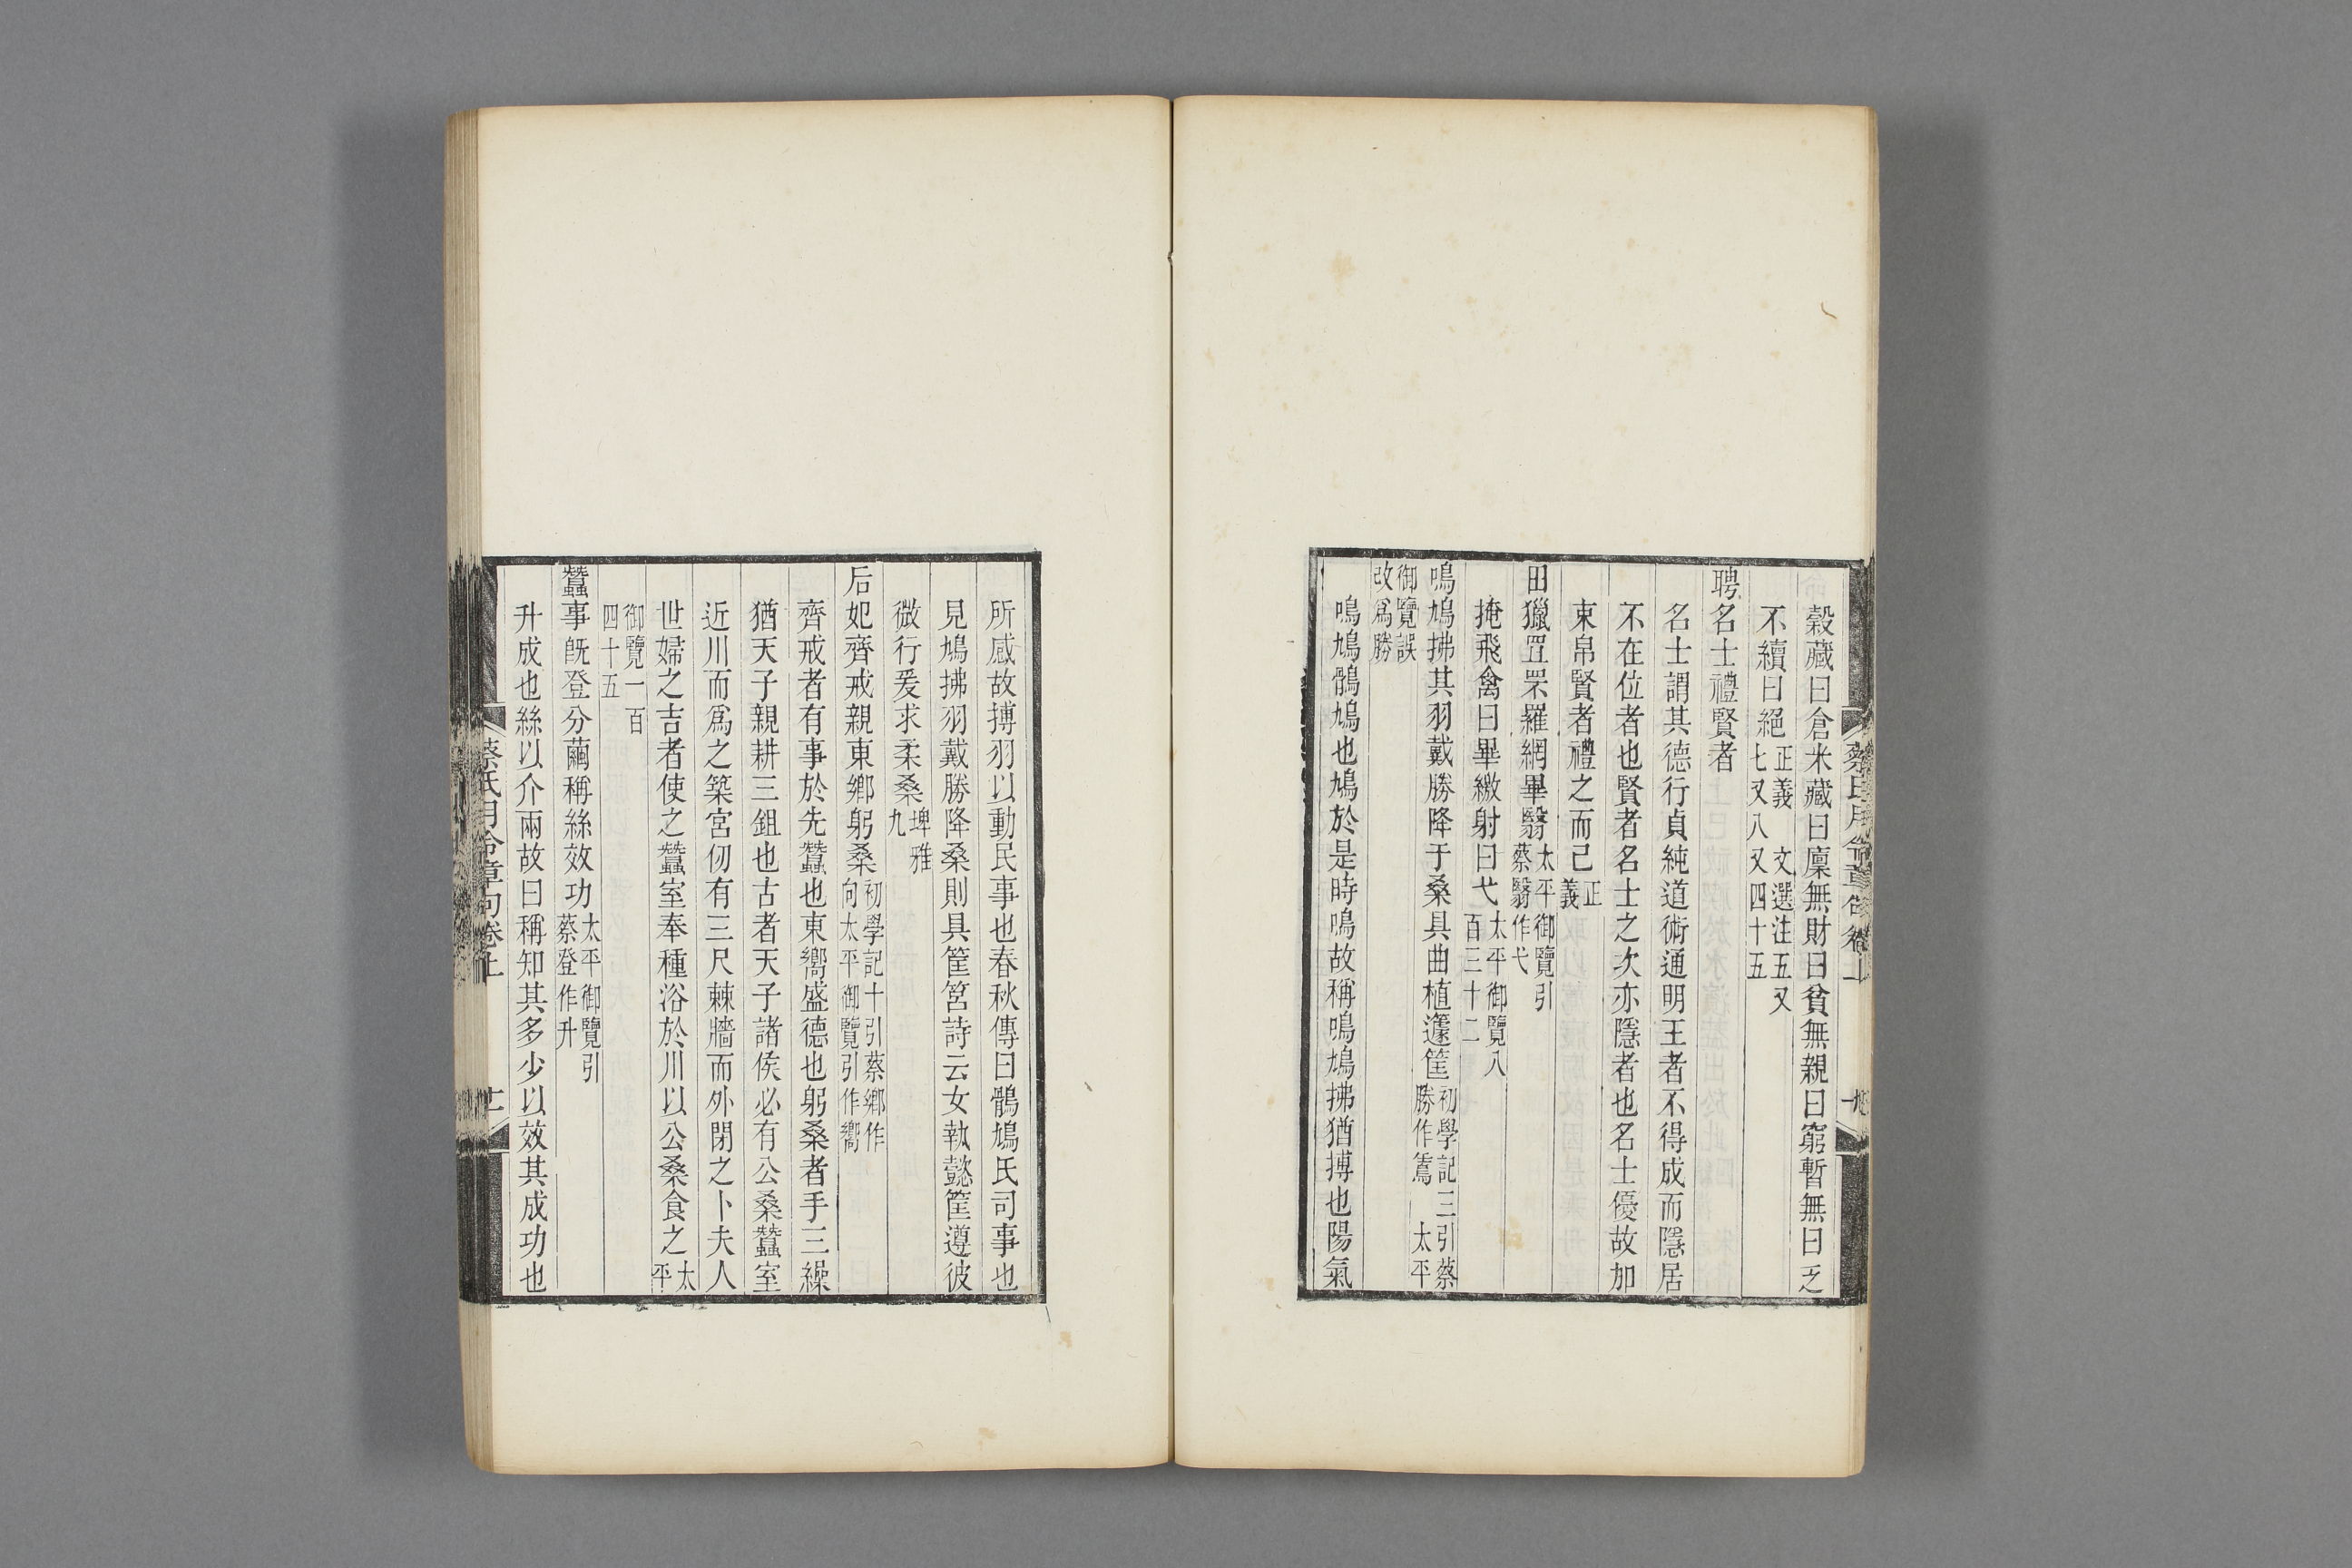 穀藏曰倉米藏曰廩無財曰貧無親曰窮暫無曰乏
不續曰絕正義　文選注五又
七又八又四十五
聘名士禮賢者
名士謂其德行貞純道術通明王者不得成而隱居
不在位者也賢者名士之次亦隱者也名士優故加
束帛賢者禮之而已正
義
田獵罝罘羅網畢翳太平御覽引
蔡翳作弋
掩飛禽曰畢繳射曰弋太平御覽八
百三十二
鳴鳩拂其羽戴勝降于桑具曲植籧筐初學記三引蔡
勝作鵀　太平
御覽誤
改爲勝
鳴鳩鶻鳩也鳩於是時鳴故稱鳴鳩拂猶搏也陽氣
蔡氏月令章句卷上
所感故搏羽以動民事也春秋傳曰鶻鳩氏司事也
見鳩拂羽戴勝降桑則具筐筥詩云女執懿筐遵彼
微行爰求柔桑埤雅
九
后妃齊戒親東鄉躬桑初學記十引蔡鄉作
向太平御覽引作嚮
齊戒者有事於先蠶也東嚮盛德也躬桑者手三繰
猶天子親耕三鉏也古者天子諸侯必有公桑蠶室
近川而爲之築宮仞有三尺棘牆而外閉之卜夫人
世婦之吉者使之蠶室奉種浴於川以公桑食之太
平
御覽一百
四十五
蠶事旣登分繭稱絲效功太平御覽引
蔡登作升
升成也絲以介兩故曰稱知其多少以效其成功也
蔡氏月令章句卷上